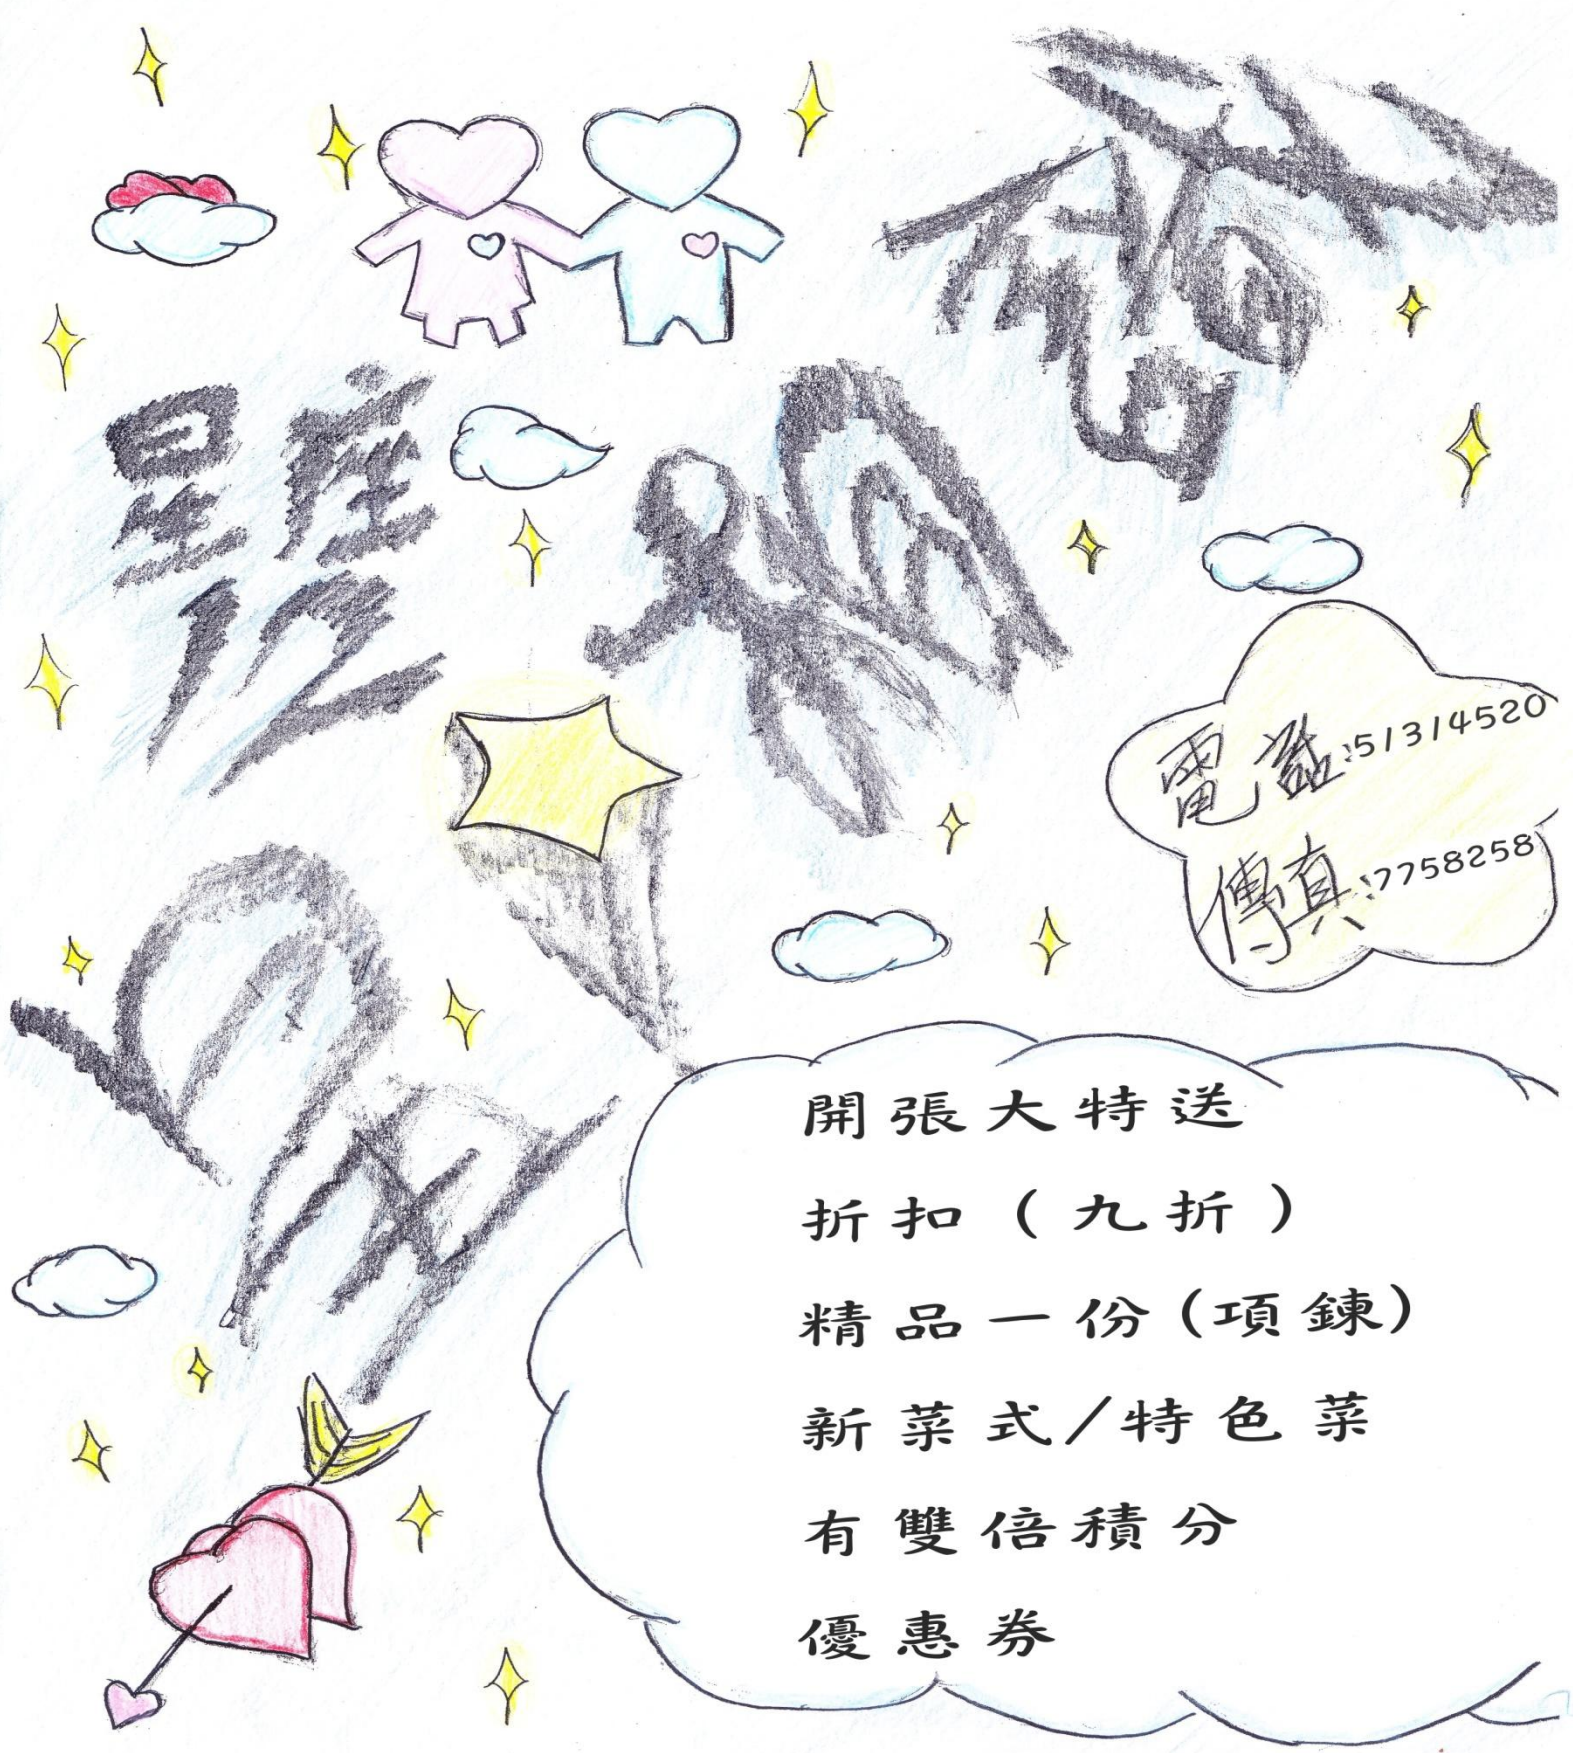 星座
12
電話:51314520
傳真:7758258
開張大特送
折扣(九折)
精品一份(項鍊)
新菜式/特色菜
有雙倍積分
優惠券